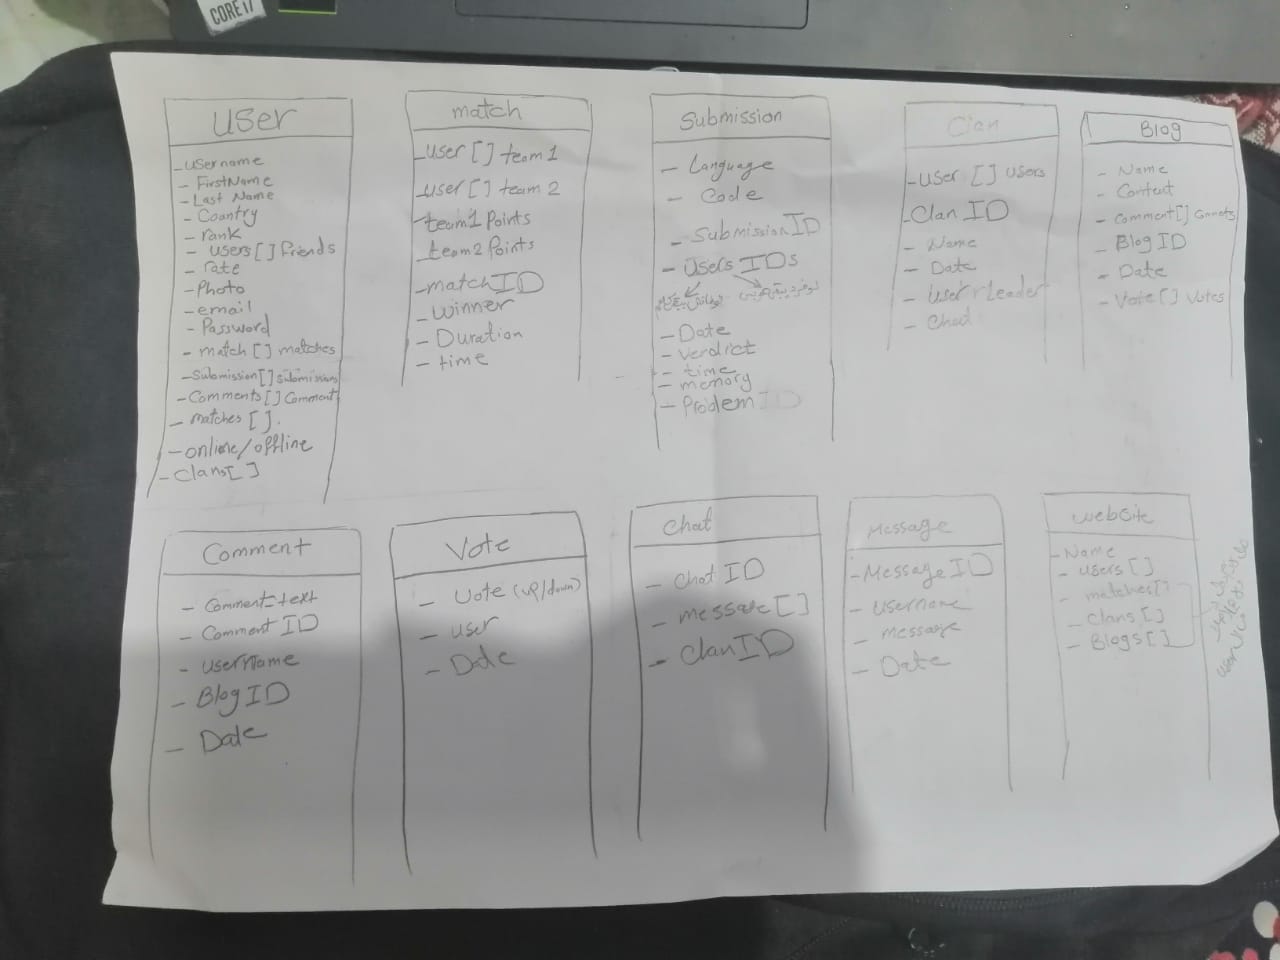 CORE i7
User
- Username
- FirstName
- Last Name
- Country
- rank
- users [] friends
- rate
- Photo
- email
- Password
- match [] matches
- Submission[] submissions
- Comments [] Comment
- matches [].
- online/offline
- Clans[]
match
- User [] team 1
- user [] team 2
team1 Points
team2 Points
- matchID
- Winner
- Duration
- time
Submission
- Language
- Code
- Submission ID
- Users IDs
- Date
- verdict
- time
- memory
- Problem ID
Clan
- User [] users
- Clan ID
- Name
- Date
- User Leader
- Chat
Blog
- Name
- Content
- Comment[]
- Blog ID
- Date
- Vote [] Votes
Comment
- Comment-text
- Comment ID
- username
- Blog ID
- Date
Vote
- Vote (up/down)
- user
- Date
Chat
- Chat ID
- message []
- Clan ID
Message
- Message ID
- Username
- message
- Date
website
- Name
- users []
- matches []
- Clans []
- Blogs []